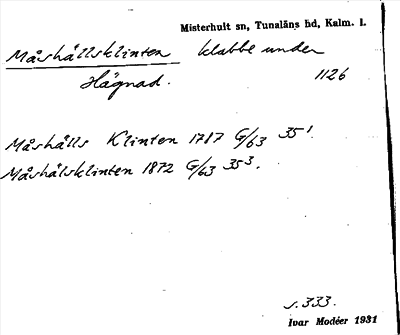 Misterhult sn, Tunaläns hd, Kalm. l.
Måshållsklinten klabbe under
Hägnad. 1126
Måshålls Klinten 1787 G/63 35¹
Måshålsklinten 1872 G/63 35³.
s. 333.
Ivar Modéer 1931